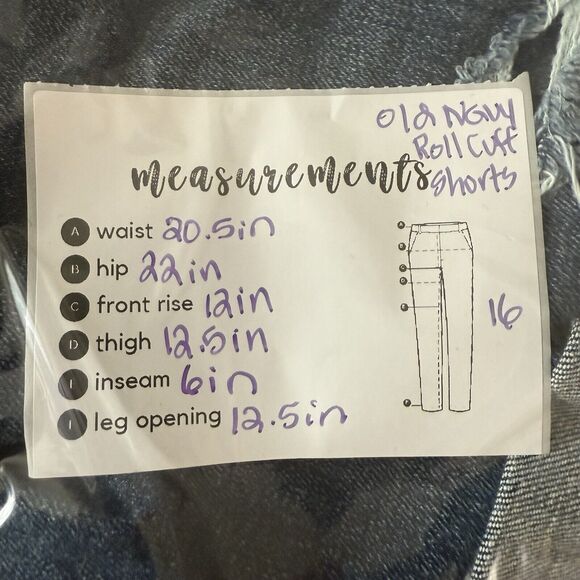 Old Navy
Roll Cuff
Shorts
measurements
A waist 20.5in
B hip 22in
C front rise 12in
D thigh 12.5in
inseam 6in
leg opening 12.5in
16